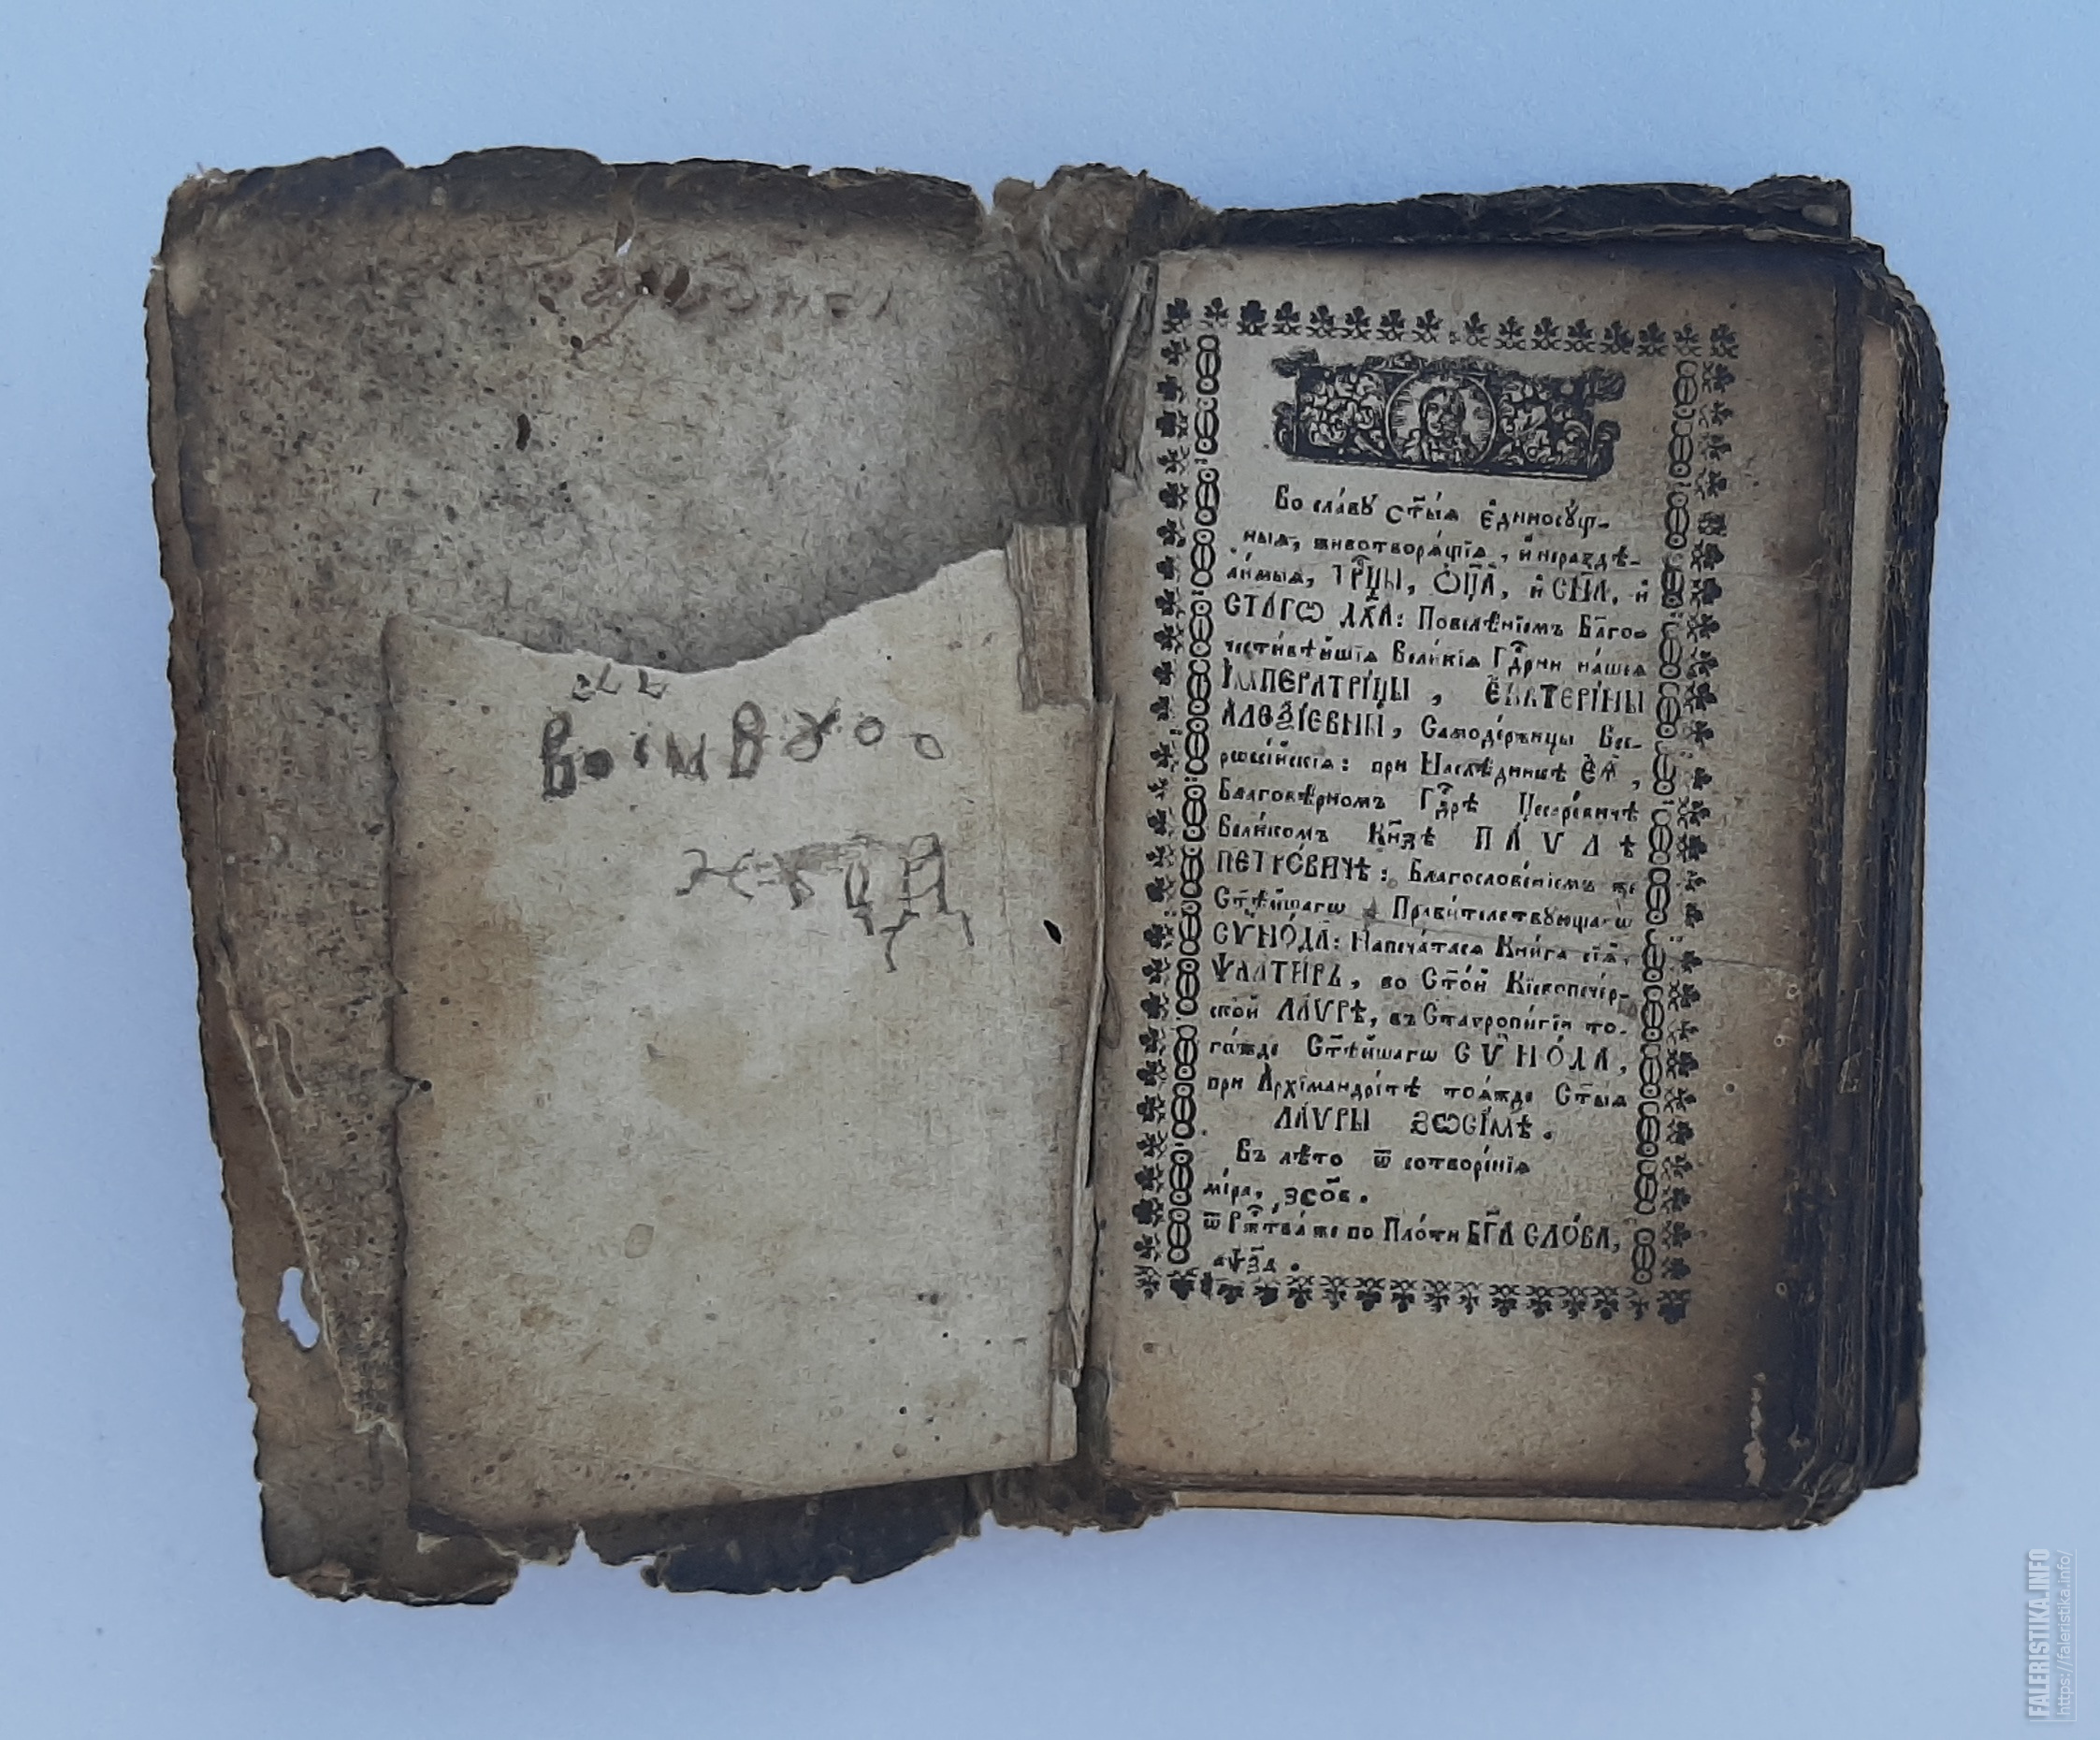 Во сла́вꙋ ст҃ы́ѧ є҆диносꙋ́щ-
ныѧ, животворѧ́щїѧ, и҆ неразде-
ли́мыѧ, ТРⷪ҇ЦЫ, Ѻ҆Ц҃А̀, и҆ СН҃А, и҆
СТА́ГѠ ДХ҃А: Повелѣ́нїемъ Бл҃го-
чести́вѣйшїѧ Вели́кїѧ Гдⷭ҇рни на́шеѧ
І҆МПЕРАТРІ́ЦЫ, Є҆КАТЕРІ́НЫ
АЛЕѮІ́ЕВНЫ, Самоде́ржицы Все-
рѡссі́йскїѧ: при Наслѣ́дникѣ Є҆Ѧ̀,
Благовѣ́рномъ Гдⷭ҇рѣ Цесаре́вичѣ
Вели́комъ Кн҃зѣ ПА́ѴЛѢ
ПЕТРО́ВИЧѢ: Благослове́нїемъ же
Ст҃ѣ́йшагѡ Прави́телствꙋющагѡ
СѴНО́ДА: Напеча́тасѧ Кни́га сїѧ̀,
ѰАЛТИ́РЬ, во Ст҃о́й Кїевопече́р-
ской ЛА́ѴРѢ, въ Ставропи́гїи то-
га́жде Ст҃ѣ́йшагѡ СѴНО́ДА,
при А҆рхїмандрі́тѣ тоѧ́жде Ст҃ы́ѧ
ЛА́ѴРЫ ЗѠСІ́МѢ.
Въ лѣ́то ѿ сотворе́нїѧ
мі́ра, ҂зсо҃в.
ѿ Ржⷭ҇тва́ же по Пло́ти БГ҃А СЛО́ВА,
҂аѱѯ҃д.
FALERISTIKA.INFO
https://faleristika.info/